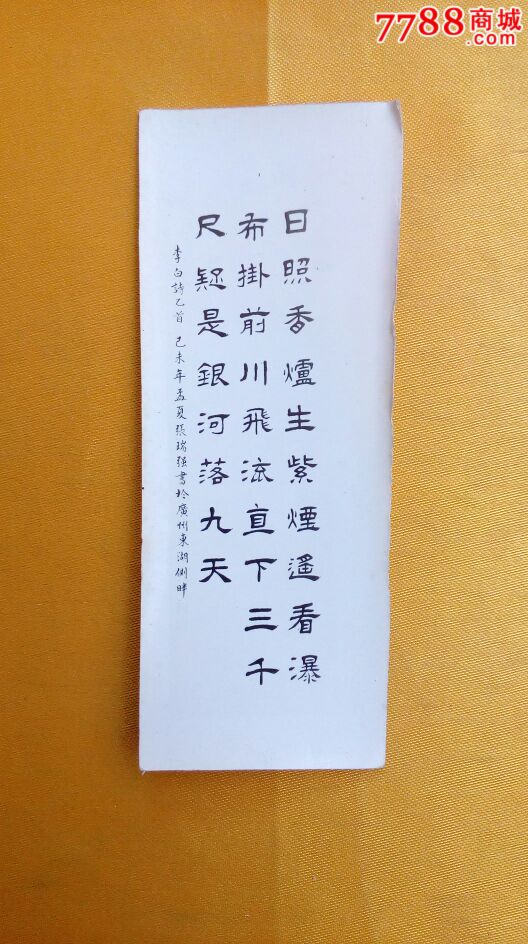 7788商城
.com
日照香爐生紫煙遙看瀑
布掛前川飛流直下三千
尺疑是銀河落九天
李白詩乙首 己未年孟夏張瑞強書於廣州東湖側畔